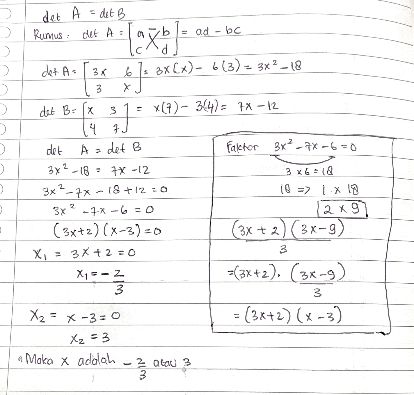 det A = det B
Rumus: det A = [a b c d] = ad - bc
det A = [3x 6 3 x] = 3x(x) - 6(3) = 3x² - 18
det B = [x 3 4 7] = x(7) - 3(4) = 7x - 12
det A = det B
3x² - 18 = 7x - 12
3x² - 7x - 18 + 12 = 0
3x² - 7x - 6 = 0
(3x+2)(x-3) = 0
x₁ = 3x + 2 = 0
x₁ = - 2/3
x₂ = x - 3 = 0
x₂ = 3
Maka x adalah - 2/3 atau 3
Faktor 3x² - 7x - 6 = 0
3 x 6 = 18
18 => 1 x 18
2 x 9
(3x + 2)(3x - 9)
3
= (3x+2). (3x-9)
3
= (3x+2)(x-3)